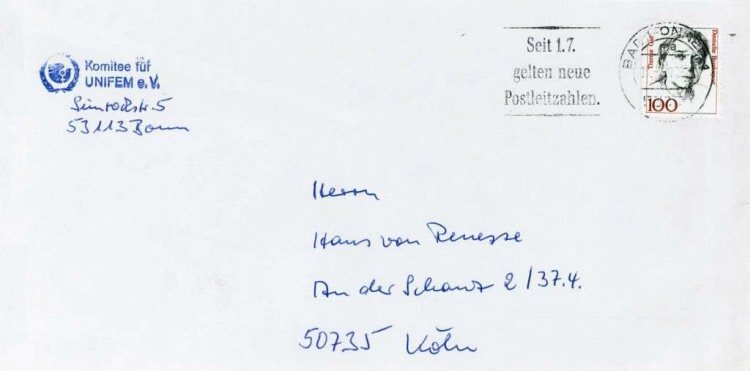 Komitee für
UNIFEM e.V.
Simrockstr. 5
53113 Bonn
Seit 1.7.
gelten neue
Postleitzahlen.
BAD HONNEF 1
Deutsche Bundespost
100
Herrn
Hans von Renesse
An der Schanz 2/37.4.
50735 Köln